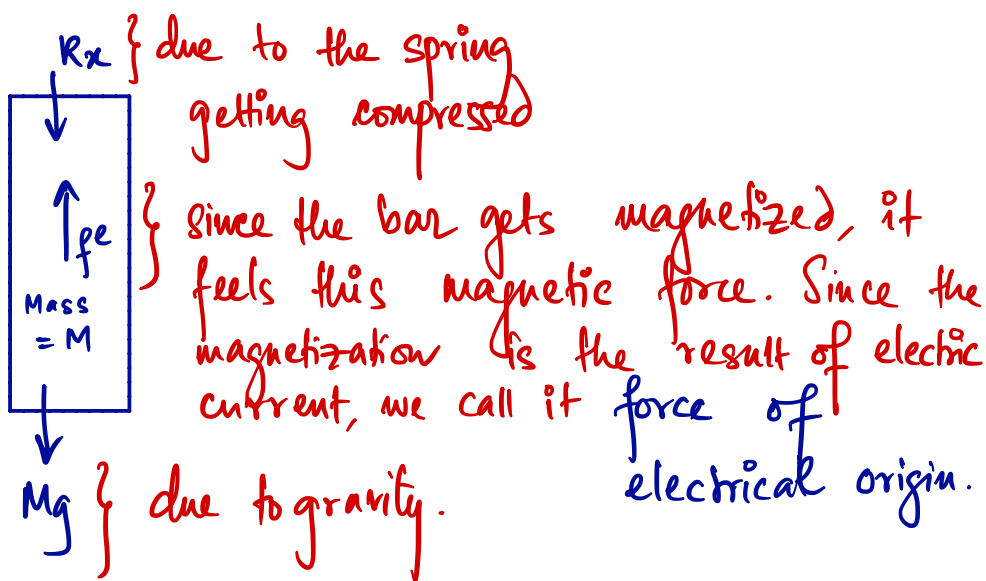 Kx } due to the spring
getting compressed
fe } since the bar gets magnetized, it
feels this magnetic force. Since the
Mass
= M
magnetization is the result of electric
current, we call it force of
electrical origin.
Mg } due to gravity.